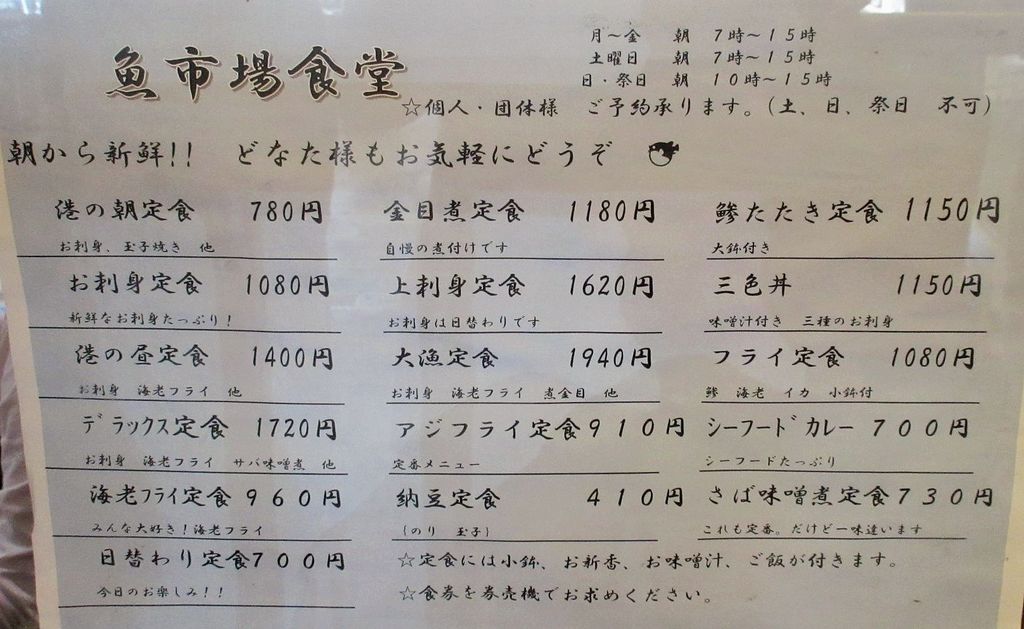 魚市場食堂
月～金　朝　７時～１５時
土曜日　朝　７時～１５時
日・祭日　朝　１０時～１５時
☆個人・団体様　ご予約承ります。（土、日、祭日　不可）
朝から新鮮!!　どなた様もお気軽にどうぞ
港の朝定食　780円
お刺身、玉子焼き　他
お刺身定食　1080円
新鮮なお刺身たっぷり！
港の昼定食　1400円
お刺身　海老フライ　他
デラックス定食　1720円
お刺身　海老フライ　サバ味噌煮　他
海老フライ定食　９６０円
みんな大好き！海老フライ
日替わり定食７００円
今日のお楽しみ！！
金目煮定食　1180円
自慢の煮付けです
上刺身定食　1620円
お刺身は日替わりです
大漁定食　1940円
お刺身　海老フライ　煮金目　他
アジフライ定食９１０円
定番メニュー
納豆定食　４１０円
（のり　玉子）
鯵たたき定食　1150円
大鉢付き
三色丼　1150円
味噌汁付き　三種のお刺身
フライ定食　1080円
鯵　海老　イカ　小鉢付
シーフードカレー　７００円
シーフードたっぷり
さば味噌煮定食７３０円
これも定番。だけど一味違います
☆定食には小鉢、お新香、お味噌汁、ご飯が付きます。
☆食券を券売機でお求めください。